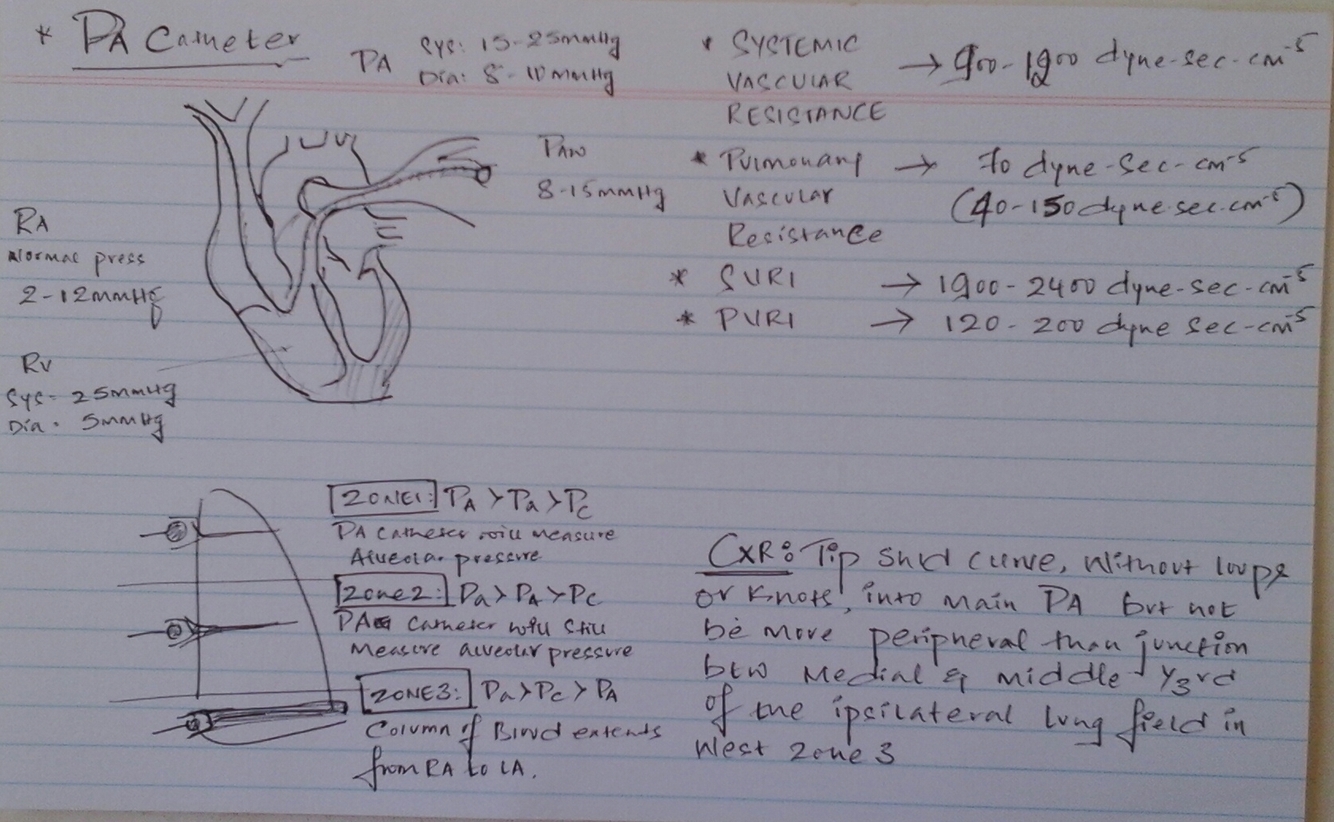 * PA Catheter
PA Sys: 15-25mmHg
Dia: 8-10mmHg
PAW
8-15mmHg
RA
Normal press
2-12mmHg
RV
Sys- 25mmHg
Dia- 5mmHg
* SYSTEMIC
VASCULAR
RESISTANCE → 900-1200 dyne-sec-cm⁻⁵
* Pulmonary → 70 dyne-Sec-cm⁻⁵
Vascular (40-150 dyne.sec.cm⁻⁵)
Resistance
* SVRI → 1900-2400 dyne-sec-cm⁻⁵
* PVRI → 120-200 dyne sec-cm⁻⁵
ZONE1: PA > Pa > Pc
PA Catheter will measure
Alveolar pressure
Zone2: Pa > PA > Pc
PA Catheter will still
Measure alveolar pressure
ZONE3: Pa > Pc > PA
Column of Blood extends
from RA to LA.
CXR: Tip shld curve, without loops
or knots, into main PA but not
be more peripheral than junction
btw Medial & middle 1/3rd
of the ipsilateral lung field in
West Zone 3